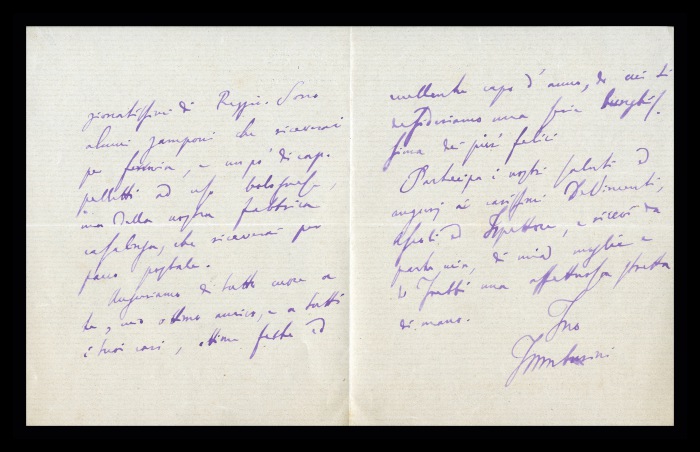 zionatissimi di Reggio. Sono
alcuni zamponi che riceverai
per ferrovia, e un po' di cap-
pelletti ad uso bolognese,
ma della nostra fabbrica
casalinga, che riceverai per
pacco postale.
Auguriamo di tutto cuore a
te, mio ottimo amico, e a tutti
i tuoi cari, ottime feste ed
eccellente capo d'anno, de cui ti
desideriamo una serie lunghis-
sima de' più felici
Partecipa i nostri saluti ed
auguri ai carissimi
ed Ispettore, e ricevi da
parte mia, di mia moglie e
una affettuosa stretta
di mano.
Tuo
Tamburini